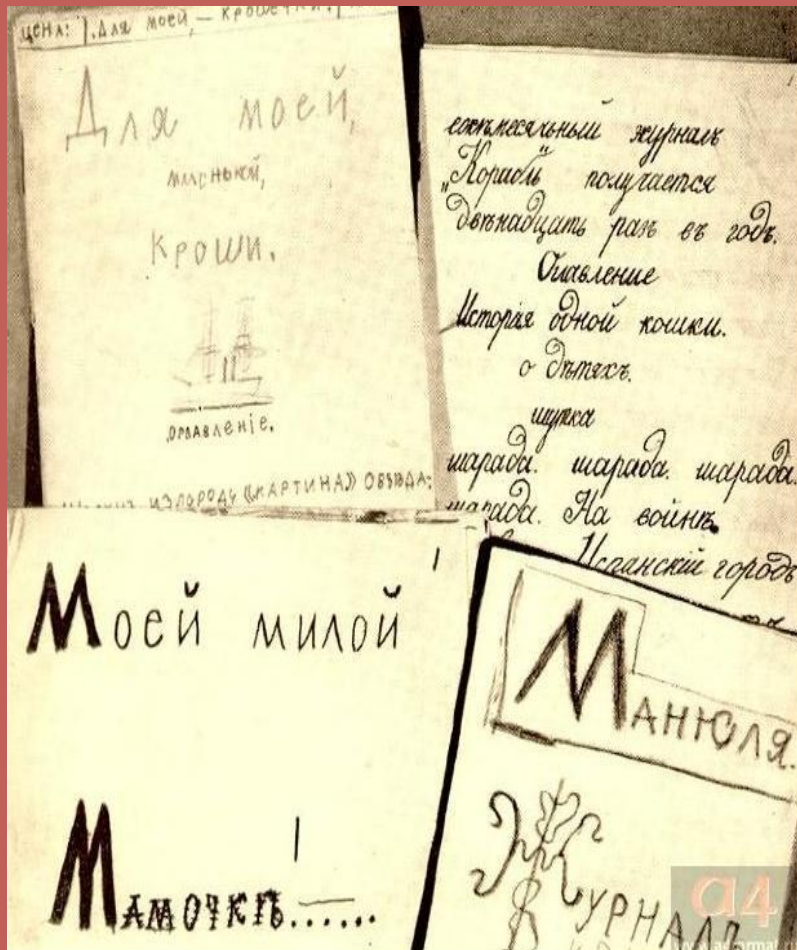 ЦЕНА: 1. Для моей, — крошечки.
Для моей,
маленькой,
кроши.
оглавленіе.
«КАРТИНА»
ежемѣсячный журналъ
„Корабль" получается
двѣнадцать разъ въ годъ.
Оглавление
Исторія одной кошки.
о дѣтяхъ.
шутка
шарада. шарада. шарада.
шарада. На войнѣ.
Испанскій городъ
Моей милой
Мамочкѣ......
Манюля.
Журналъ
a4